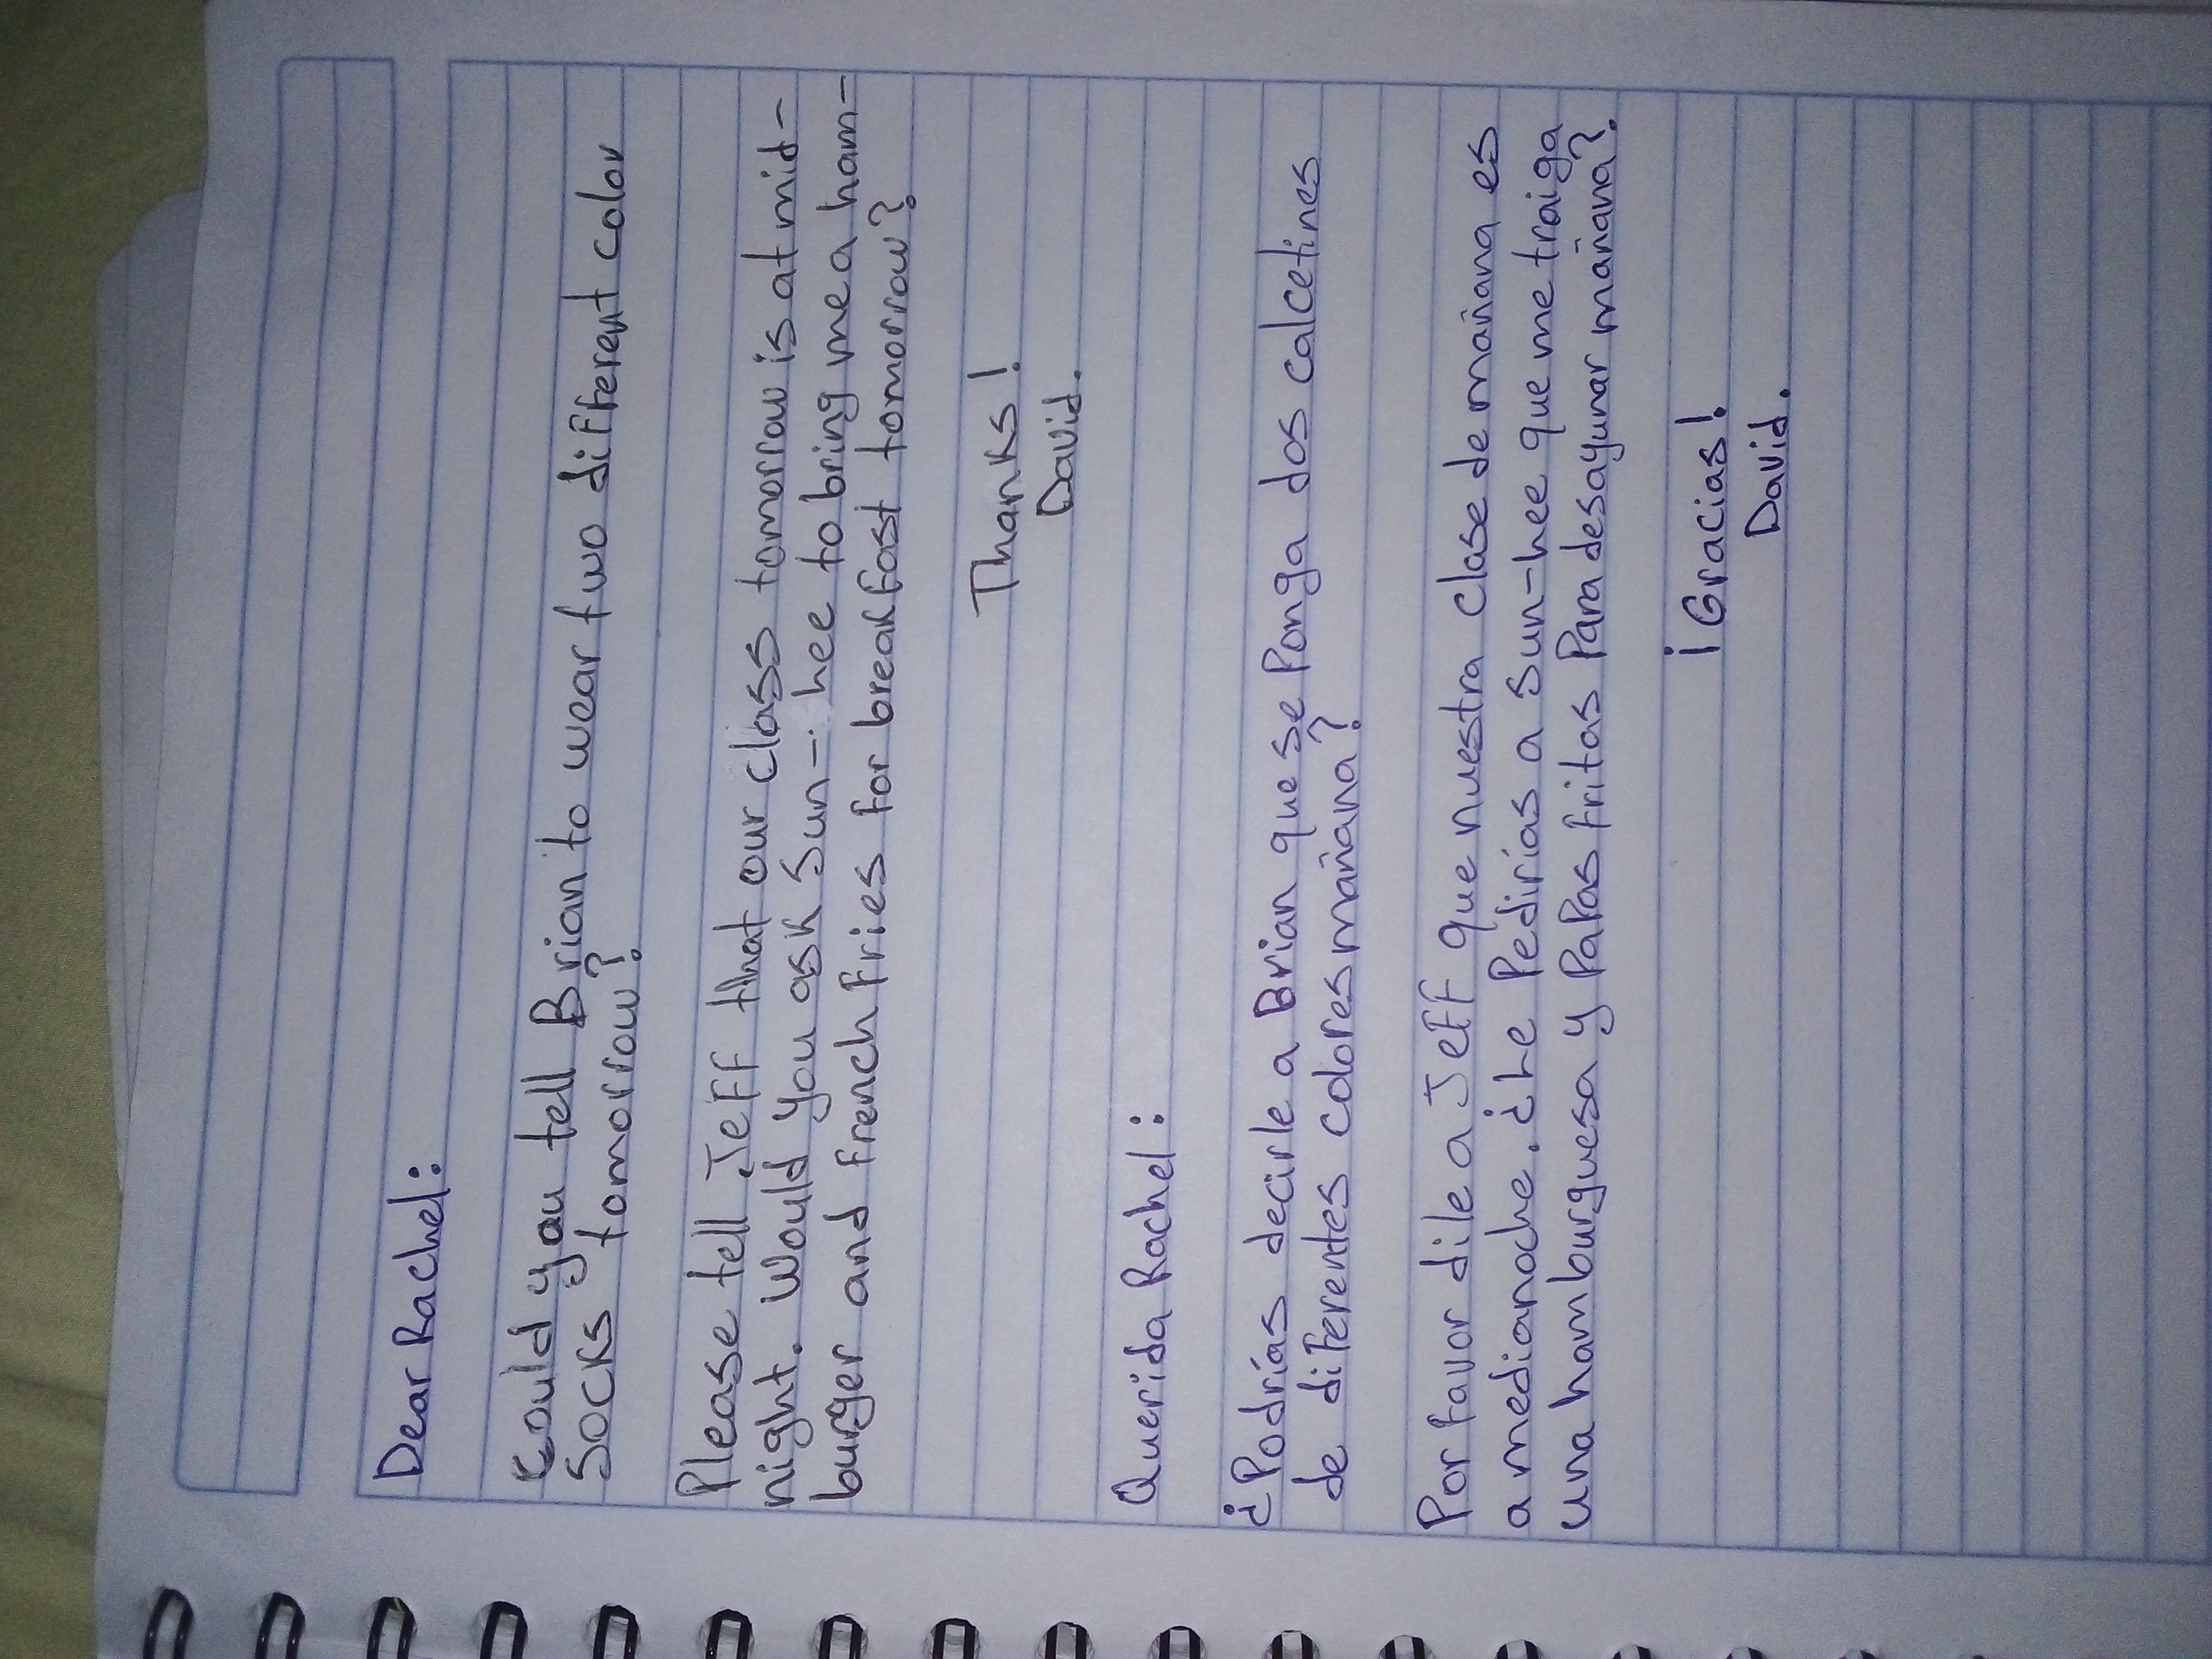 Dear Rachel:
Could you tell Brian to wear two different color
socks tomorrow?
Please tell Jeff that our class tomorrow is at mid-
night. Would you ask Sun-hee to bring me a ham-
burger and french fries for breakfast tomorrow?
Thanks!
David.
Querida Rachel:
¿Podrías decirle a Brian que se ponga dos calcetines
de diferentes colores mañana?
Por favor dile a Jeff que nuestra clase de mañana es
a medianoche. ¿Le pedirías a Sun-hee que me traiga
una hamburguesa y papas fritas para desayunar mañana?
¡Gracias!
David.